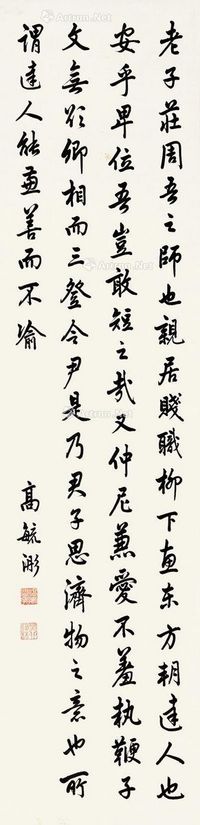 老子莊周吾之師也親居賤職柳下惠东方朔達人也
安乎卑位吾豈敢短之哉又仲尼兼愛不羞執鞭子
文無欲卿相而三登令尹是乃君子思濟物之意也所
謂達人能兼善而不渝
高毓浵